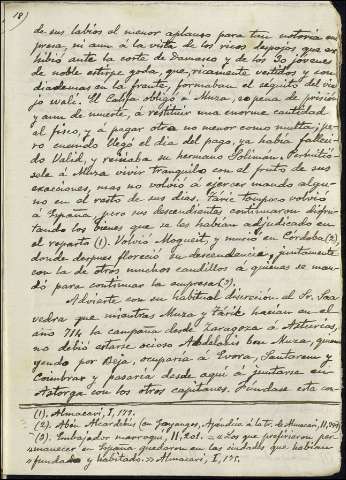 18)
de sus labios el menor aplauso para tan notoria em
presa, ni aun a la vista de los ricos despojos que ex
hibió ante la corte de Damasco y de los 30 jóvenes
de noble estirpe goda, que, ricamente vestidos y con
diademas en la frente, formaban el séquito del vie
jo walí. El Califa obligó a Muza, so pena de prisión
y aun de muerte, á restituir una enorme cantidad
al fisco, y á pagar otra no menor como multa; pe
ro cuando llegó el día del pago, ya había falleci
do Valid, y reinaba su hermano Soliman. Permitió
sele á Muza vivir tranquilo con el fruto de sus
exacciones, mas no volvió á ejercer mando algu
no en el resto de sus días. Táric tampoco volvió
á España, pero sus descendientes continuaron disfru
tando los bienes que se les habían adjudicado en
el reparto (1). Volvió Mogueit, y murió en Córdoba (2)
donde despues floreció su descendencia, juntamente
con la de otros muchos caudillos á quienes se man
dó para continuar la empresa (3).
Advierte con su habitual discreción el Sr. Saa
vedra que mientras Muza y Táric hacían en el
año 714 la campaña desde Zaragoza á Asturias,
no debió estarse ocioso Abdelaziz ben Muza, quien
yendo por Beja, ocuparía á Evora, Santarem y
Coimbra y pasaría desde aquí á juntarse en
Astorga con los otros capitanes. Fúndase esta con-
(1). Almacari, I, 175.
(2). Aben Alcardebús (en Gayangos, Apéndice á la tr. de Almacari, II,
(3). Embajador marroquí, II, 201. = «Los que prefirieron per-
»manecer en España quedaron en las ciudades que habían
»fundado y habitado.» Almacari, I, 175.